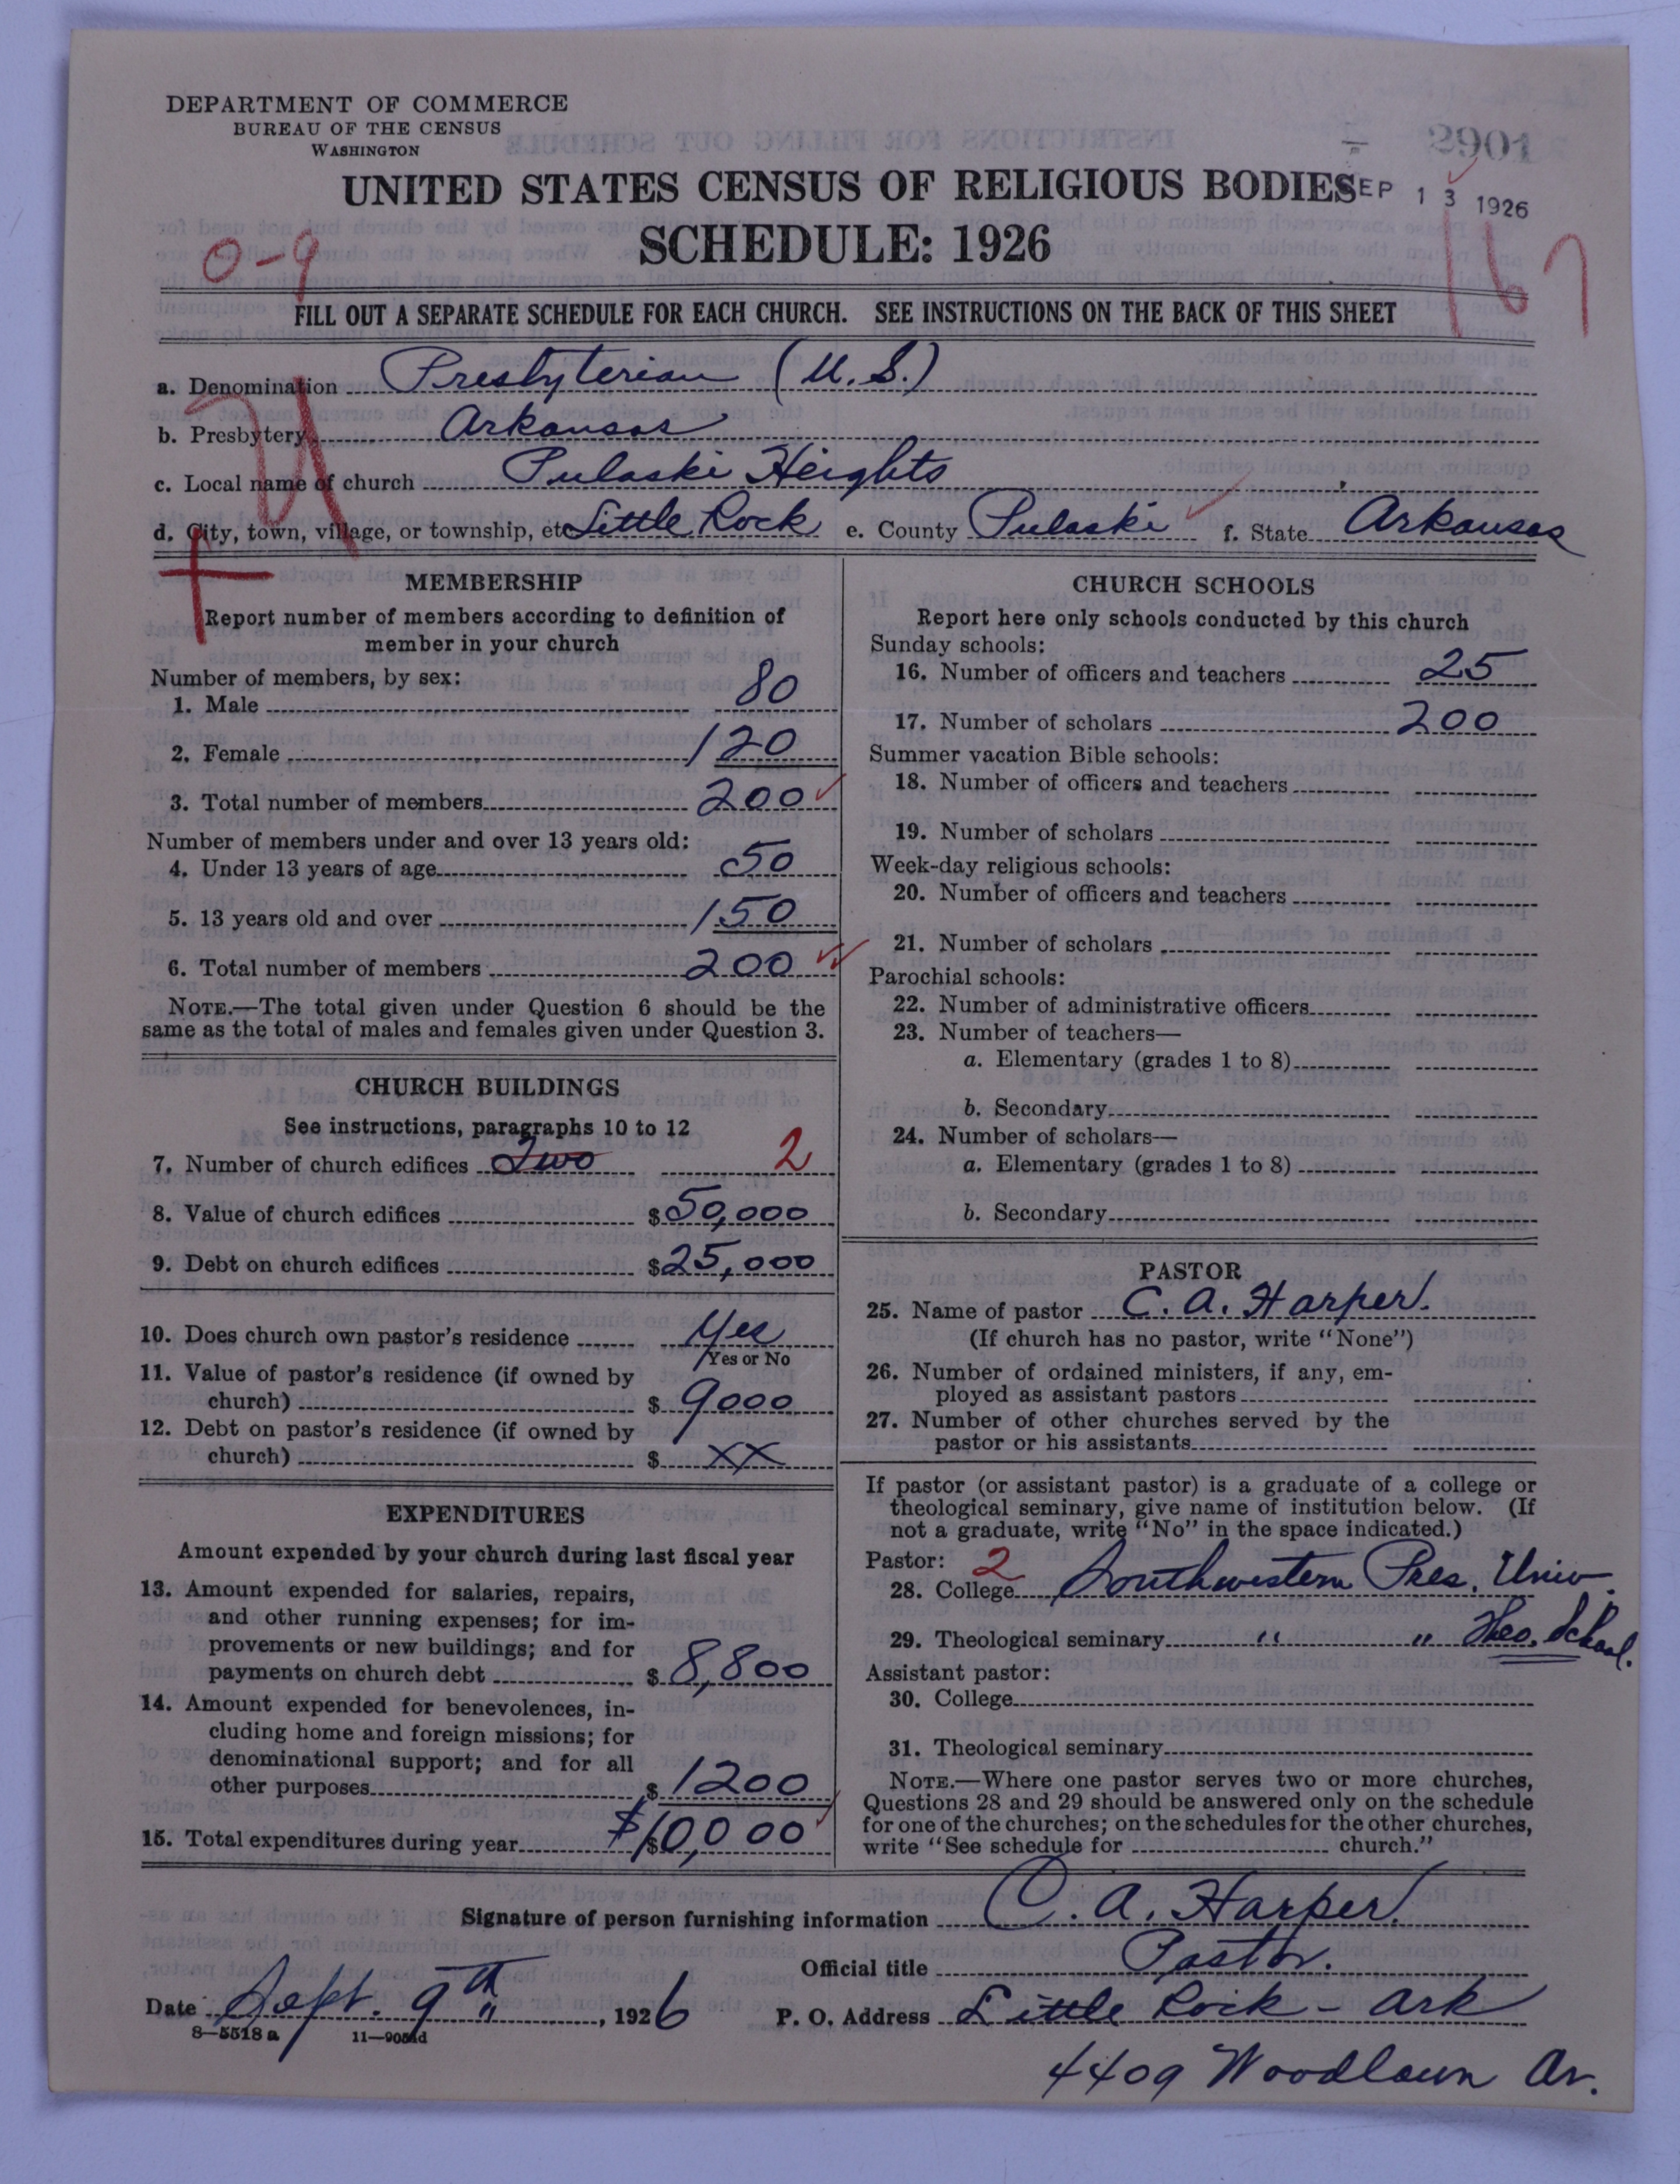 DEPARTMENT OF COMMERCE
BUREAU OF THE CENSUS
WASHINGTON
2901
UNITED STATES CENSUS OF RELIGIOUS BODIES
SEP 13 1926
SCHEDULE: 1926
0-9
167
FILL OUT A SEPARATE SCHEDULE FOR EACH CHURCH. SEE INSTRUCTIONS ON THE BACK OF THIS SHEET
a. Denomination Presbyterian (U.S.)
b. Presbytery Arkansas
c. Local name of church Pulaski Heights
d. City, town, village, or township, etc Little Rock e. County Pulaski f. State Arkansas
MEMBERSHIP
Report number of members according to definition of
member in your church
Number of members, by sex:
1. Male 80
2. Female 120
3. Total number of members 200
Number of members under and over 13 years old:
4. Under 13 years of age 50
5. 13 years old and over 150
6. Total number of members 200
NOTE.—The total given under Question 6 should be the
same as the total of males and females given under Question 3.
CHURCH BUILDINGS
See instructions, paragraphs 10 to 12
7. Number of church edifices Two 2
8. Value of church edifices $50,000
9. Debt on church edifices $25,000
10. Does church own pastor's residence Yes
Yes or No
11. Value of pastor's residence (if owned by
church) $ 9000
12. Debt on pastor's residence (if owned by
church) $ XX
EXPENDITURES
Amount expended by your church during last fiscal year
13. Amount expended for salaries, repairs,
and other running expenses; for im-
provements or new buildings; and for
payments on church debt $ 8,800
14. Amount expended for benevolences, in-
cluding home and foreign missions; for
denominational support; and for all
other purposes $ 1200
15. Total expenditures during year $ $10,000
CHURCH SCHOOLS
Report here only schools conducted by this church
Sunday schools:
16. Number of officers and teachers 25
17. Number of scholars 200
Summer vacation Bible schools:
18. Number of officers and teachers
19. Number of scholars
Week-day religious schools:
20. Number of officers and teachers
21. Number of scholars
Parochial schools:
22. Number of administrative officers
23. Number of teachers—
a. Elementary (grades 1 to 8)
b. Secondary
24. Number of scholars—
a. Elementary (grades 1 to 8)
b. Secondary
PASTOR
25. Name of pastor C. A. Harper.
(If church has no pastor, write "None")
26. Number of ordained ministers, if any, em-
ployed as assistant pastors
27. Number of other churches served by the
pastor or his assistants
If pastor (or assistant pastor) is a graduate of a college or
theological seminary, give name of institution below. (If
not a graduate, write "No" in the space indicated.)
Pastor: 2
28. College Southwestern Pres. Univ.
29. Theological seminary " " Theo. School.
Assistant pastor:
30. College
31. Theological seminary
NOTE.—Where one pastor serves two or more churches,
Questions 28 and 29 should be answered only on the schedule
for one of the churches; on the schedules for the other churches,
write "See schedule for church."
Signature of person furnishing information C. A. Harper.
Official title Pastor.
Date Sept. 9th, 1926 P. O. Address Little Rock - Ark
8—5518 a
4409 Woodlawn Av.